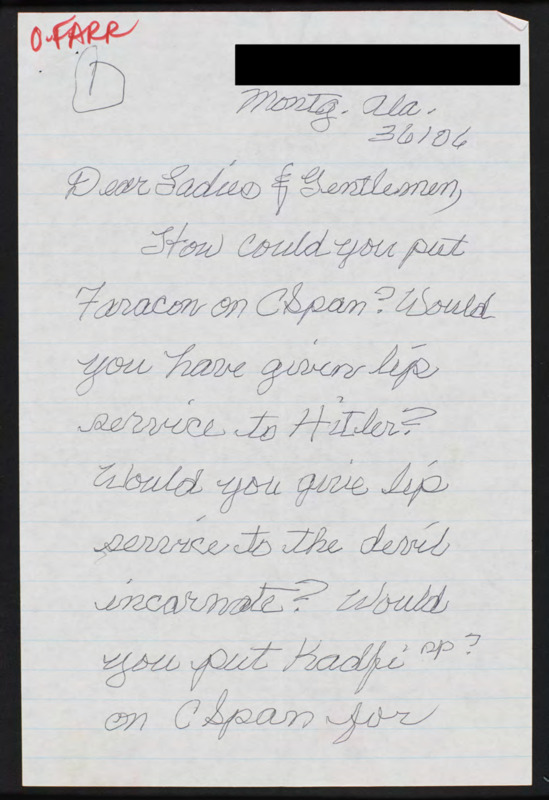 O-FARR
1
Montg. Ala.
36106
Dear Ladies & Gentlemen,
How could you put
Faracon on CSpan? Would
you have given lip
service to Hitler?
Would you give lip
service to the devil
incarnate? Would
you put Kadfi sp?
on CSpan for